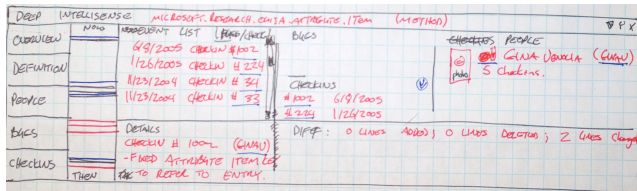 DEEP INTELLISENSE MICROSOFT.RESEARCH.CMIA.ATTRIBUTE.ITEM (METHOD)
NOW
OVERVIEW
DEFINITION
PEOPLE
BUGS
CHECKINS
THEN
EVENT LIST
6/9/2005 CHECKIN #1002
1/26/2005 CHECKIN #224
11/23/2004 CHECKIN #34
11/23/2004 CHECKIN #33
BUGS
CHECKINS
#1002 6/9/2005
#224 1/26/2005
PEOPLE
photo
GINA VENOLIA (GINAV)
5 Checkins.
DETAILS
CHECKIN # 1002 (GINAV)
-FIXED ATTRIBUTE ITEM
TO REFER TO ENTRY.
DIFF: 0 LINES ADDED; 0 LINES DELETED; 2 LINES Changed